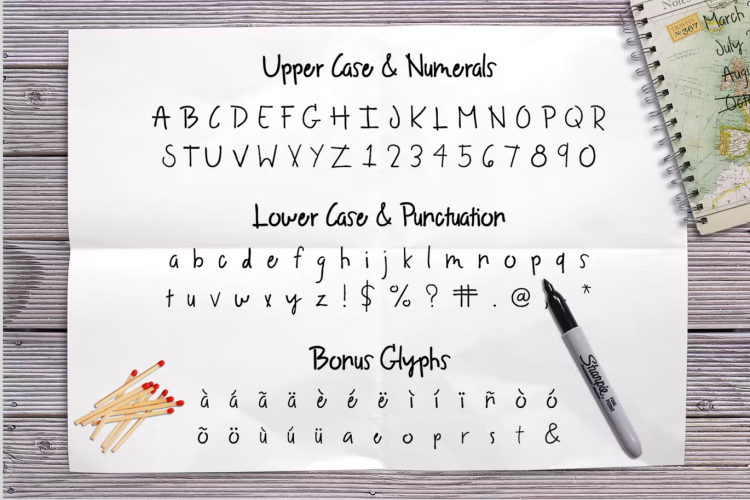 Upper Case & Numerals
A B C D E F G H I J K L M N O P Q R
S T U V W X Y Z 1 2 3 4 5 6 7 8 9 0
Lower Case & Punctuation
a b c d e f g h i j k l m n o p q s
t u v w x y z ! $ % ? # . @ *
Bonus Glyphs
à á ã ä è é ë ì í ï ñ ò ó
õ ö ù ú ü a e o p r s t &
Sharpie
Notes
No. 367
March
July